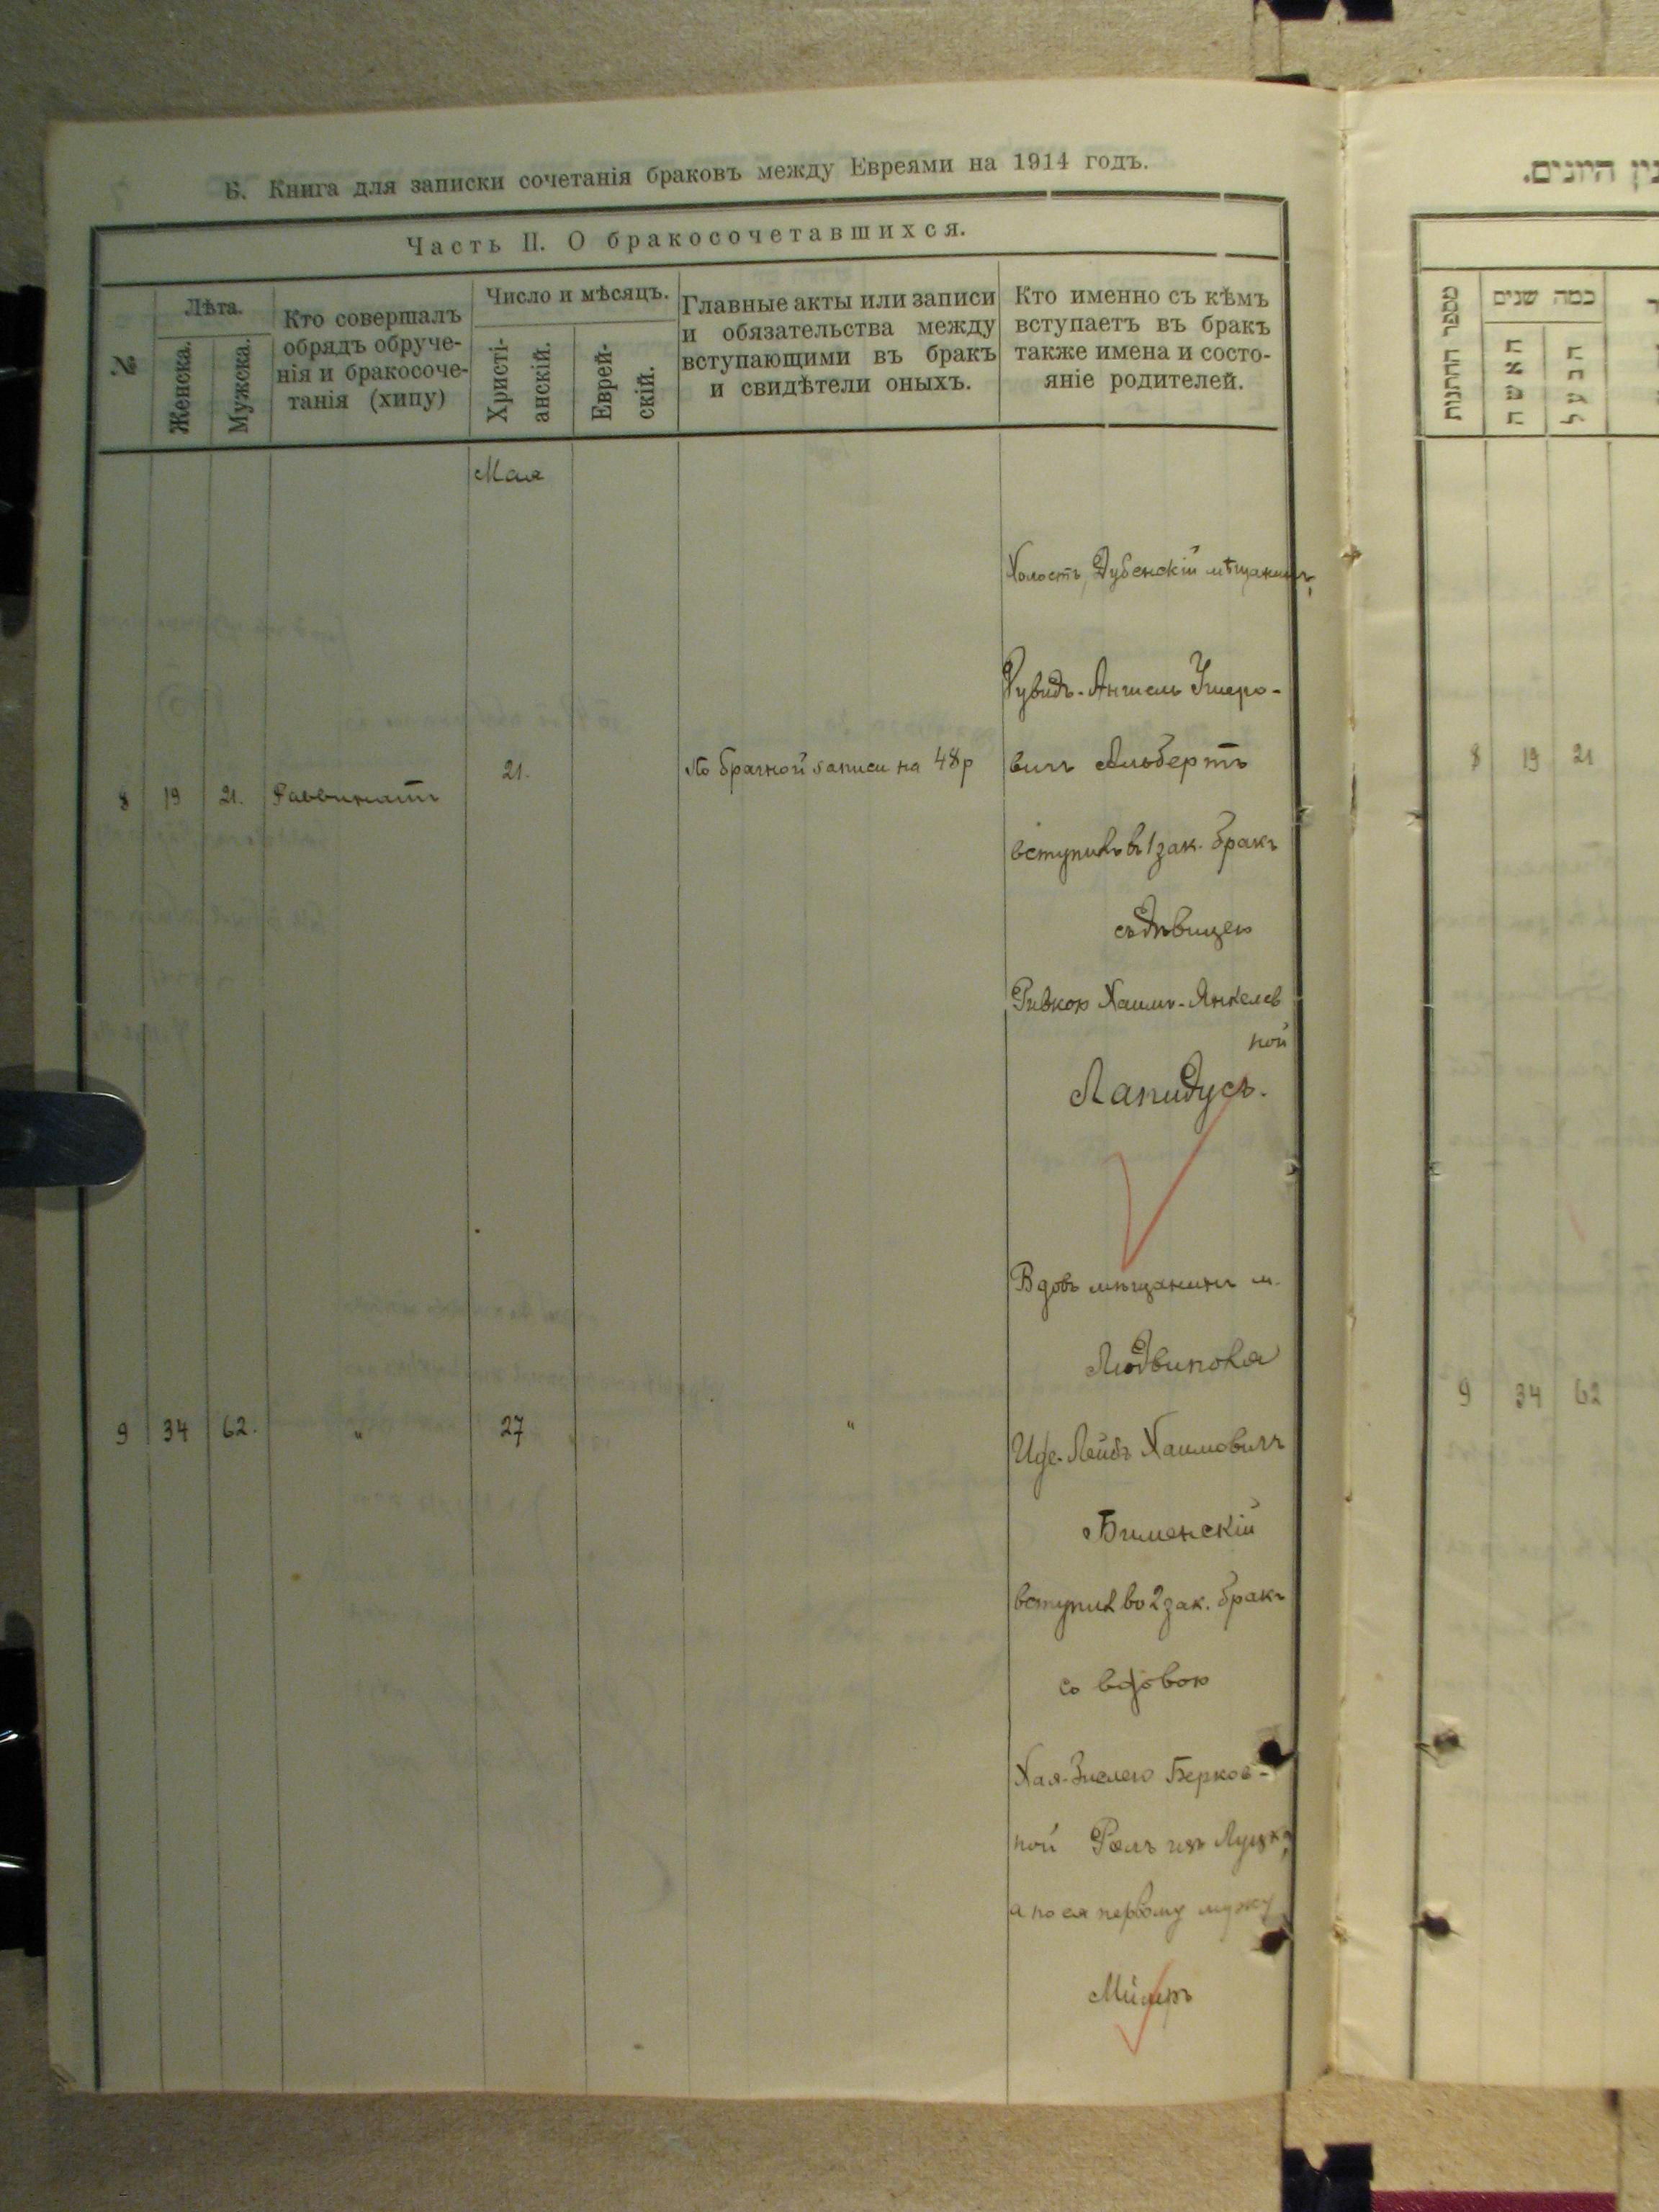 Б. Книга для записки сочетанія браковъ между Евреями на 1914 годъ.
Часть II. О бракосочетавшихся.
№
Лѣта.
Женска.
Мужска.
Кто совершалъ
обрядъ обруче-
нія и бракосоче-
танія (хипу)
Число и мѣсяцъ.
Христі-
анскій.
Еврей-
скій.
Главные акты или записи
и обязательства между
вступающими въ бракъ
и свидѣтели оныхъ.
Кто именно съ кѣмъ
вступаетъ въ бракъ
также имена и состо-
яніе родителей.
Мая
8 19 21. Раввинатъ 21. По брачной записи на 48 р
Холостъ, Дубенскій мѣщанинъ,
Рувидъ-Аншель Ушеро-
вичъ Альбертъ
вступилъ въ 1 зак. бракъ
съ дѣвицею
Ривкою Хаимъ-Янкелев
ной
Лапидусъ.
9 34 62. " 27 "
Вдовъ мѣщанинъ м.
Людвиполя
Иде-Лейбъ Хаимовичъ
Бименскій
вступил во 2 зак. бракъ
со вдовою
Хая-Зислею Берков-
ной из Луцка,
а по ея первому мужу
מספר החתונות
כמה שנים
האשה
הבעל
8 19 21
9 34 62